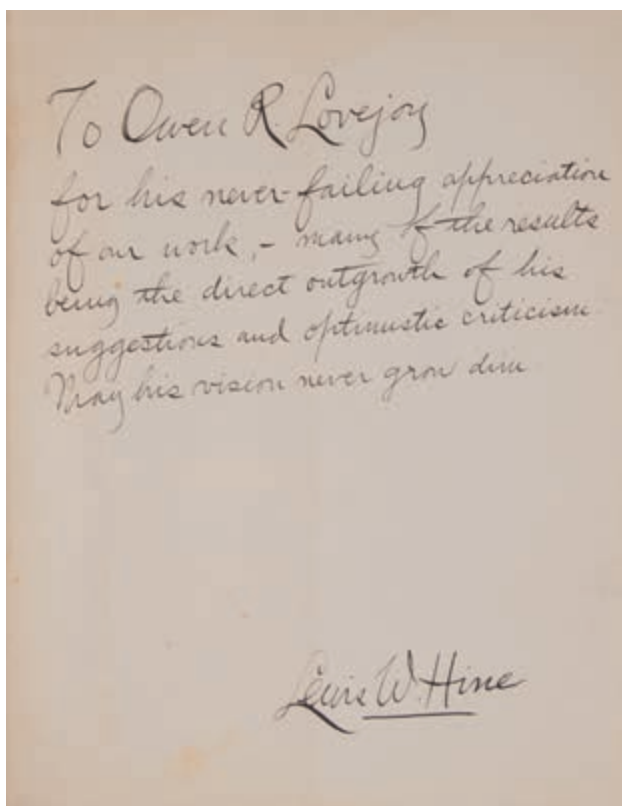 To Owen R Lovejoy
for his never-failing appreciation
of our work, - many of the results
being the direct outgrowth of his
suggestions and optimistic criticism
May his vision never grow dim
Lewis W. Hine